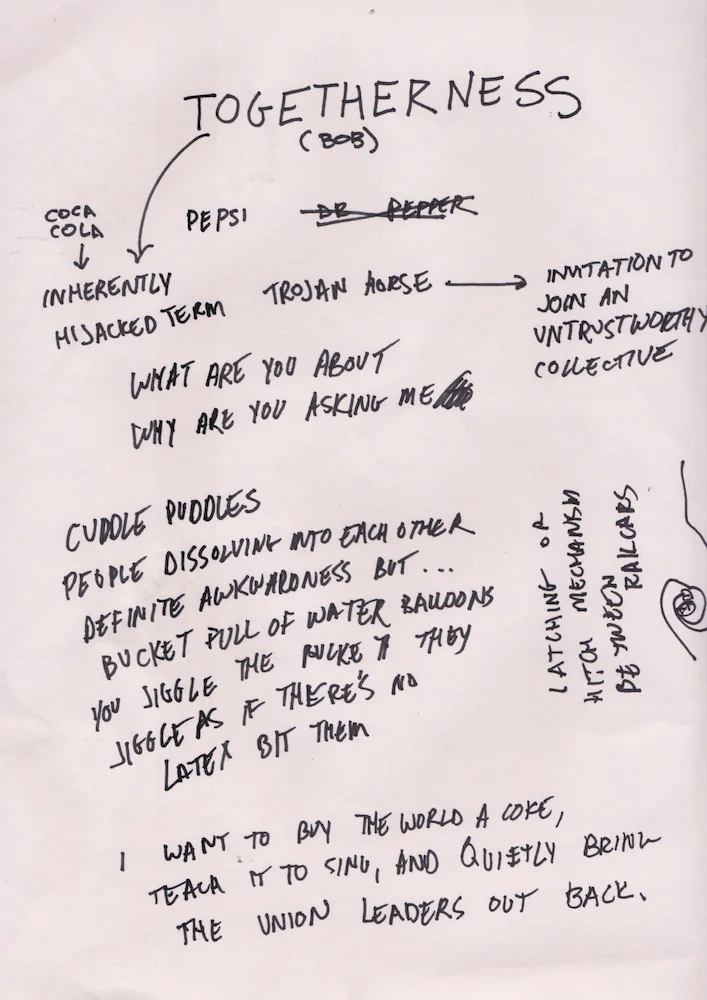 TOGETHERNESS
(BOB)
COCA
COLA
PEPSI
DR PEPPER
INHERENTLY
HIJACKED TERM
TROJAN HORSE
INVITATION TO
JOIN AN
UNTRUSTWORTHY
COLLECTIVE
WHAT ARE YOU ABOUT
WHY ARE YOU ASKING ME
CUDDLE PUDDLES
PEOPLE DISSOLVING INTO EACH OTHER
DEFINITE AWKWARDNESS BUT...
BUCKET FULL OF WATER BALLOONS
YOU JIGGLE THE BUCKET THEY
JIGGLE AS IF THERE'S NO
LATEX BIT THEM
LATCHING OR
HITCH MECHANISM
BETWEEN
RAILCARS
I WANT TO BUY THE WORLD A COKE,
TEACH IT TO SING, AND QUIETLY BRING
THE UNION LEADERS OUT BACK.